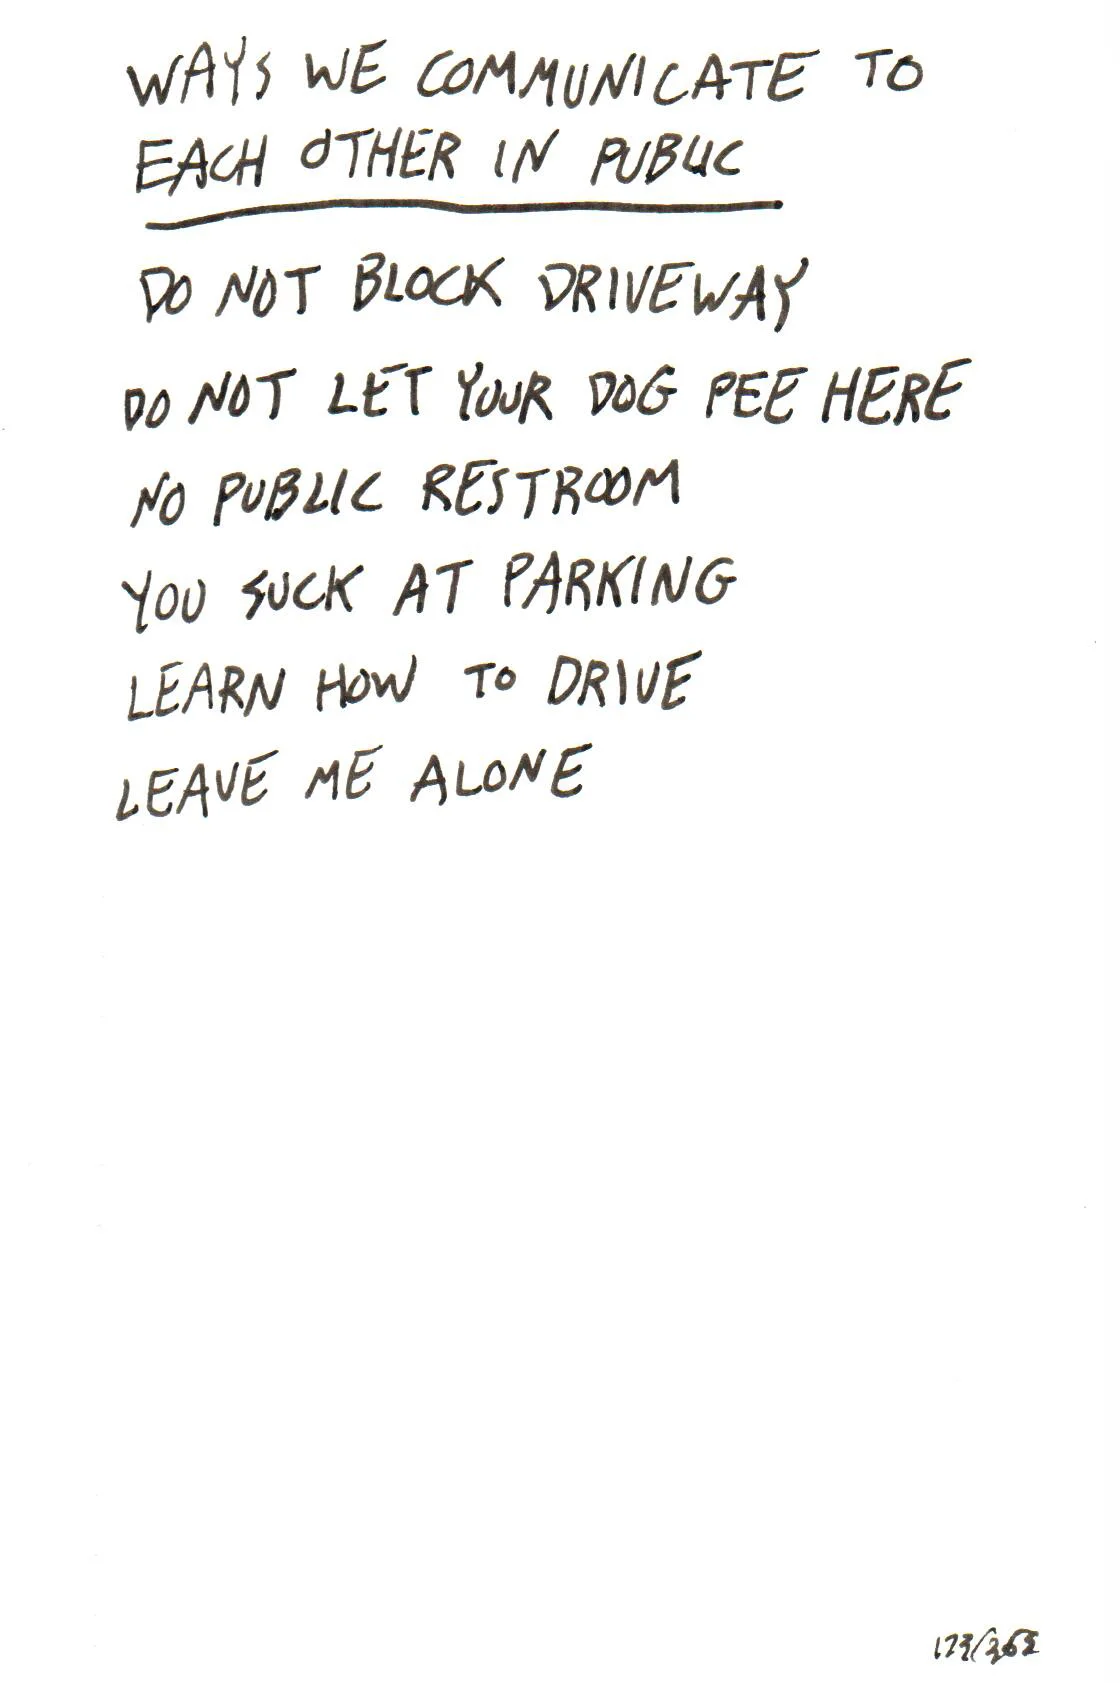 WAYS WE COMMUNICATE TO
EACH OTHER IN PUBLIC
DO NOT BLOCK DRIVEWAY
DO NOT LET YOUR DOG PEE HERE
NO PUBLIC RESTROOM
YOU SUCK AT PARKING
LEARN HOW TO DRIVE
LEAVE ME ALONE